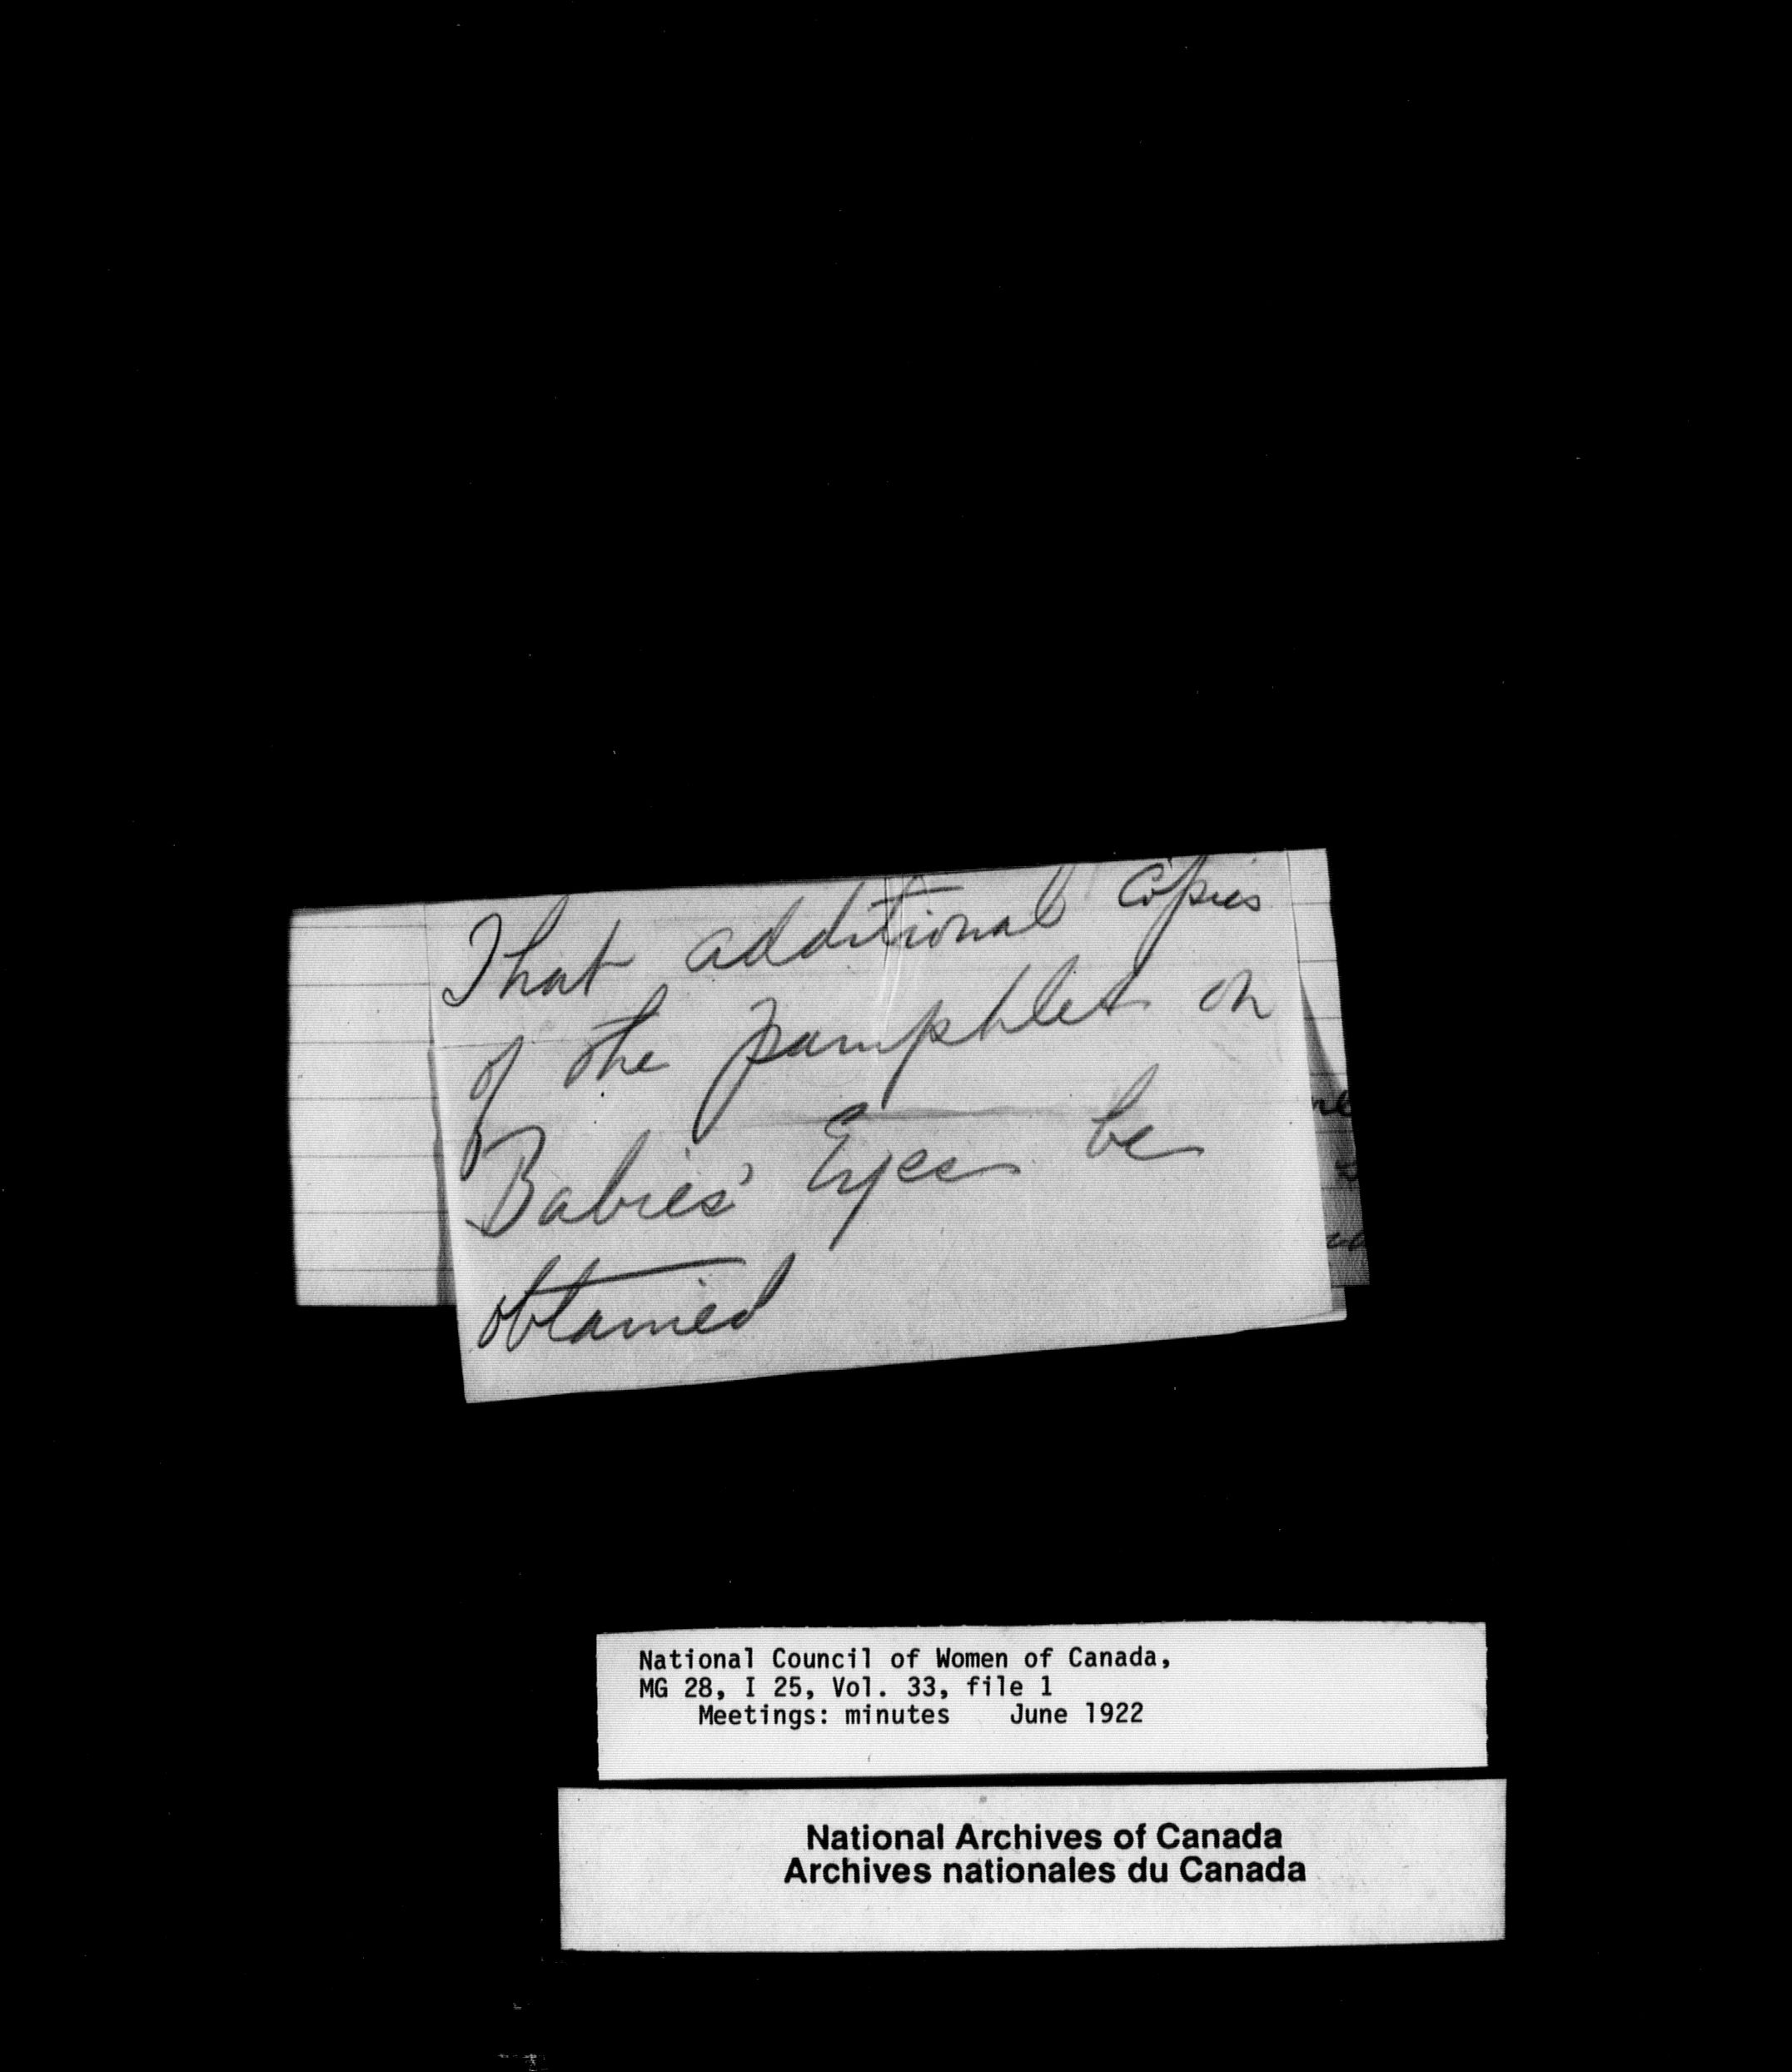 That additional copies
of the pamphlet on
Babies' Eyes be
obtained
National Council of Women of Canada,
MG 28, I 25, Vol. 33, file 1
Meetings: minutes June 1922
National Archives of Canada
Archives nationales du Canada